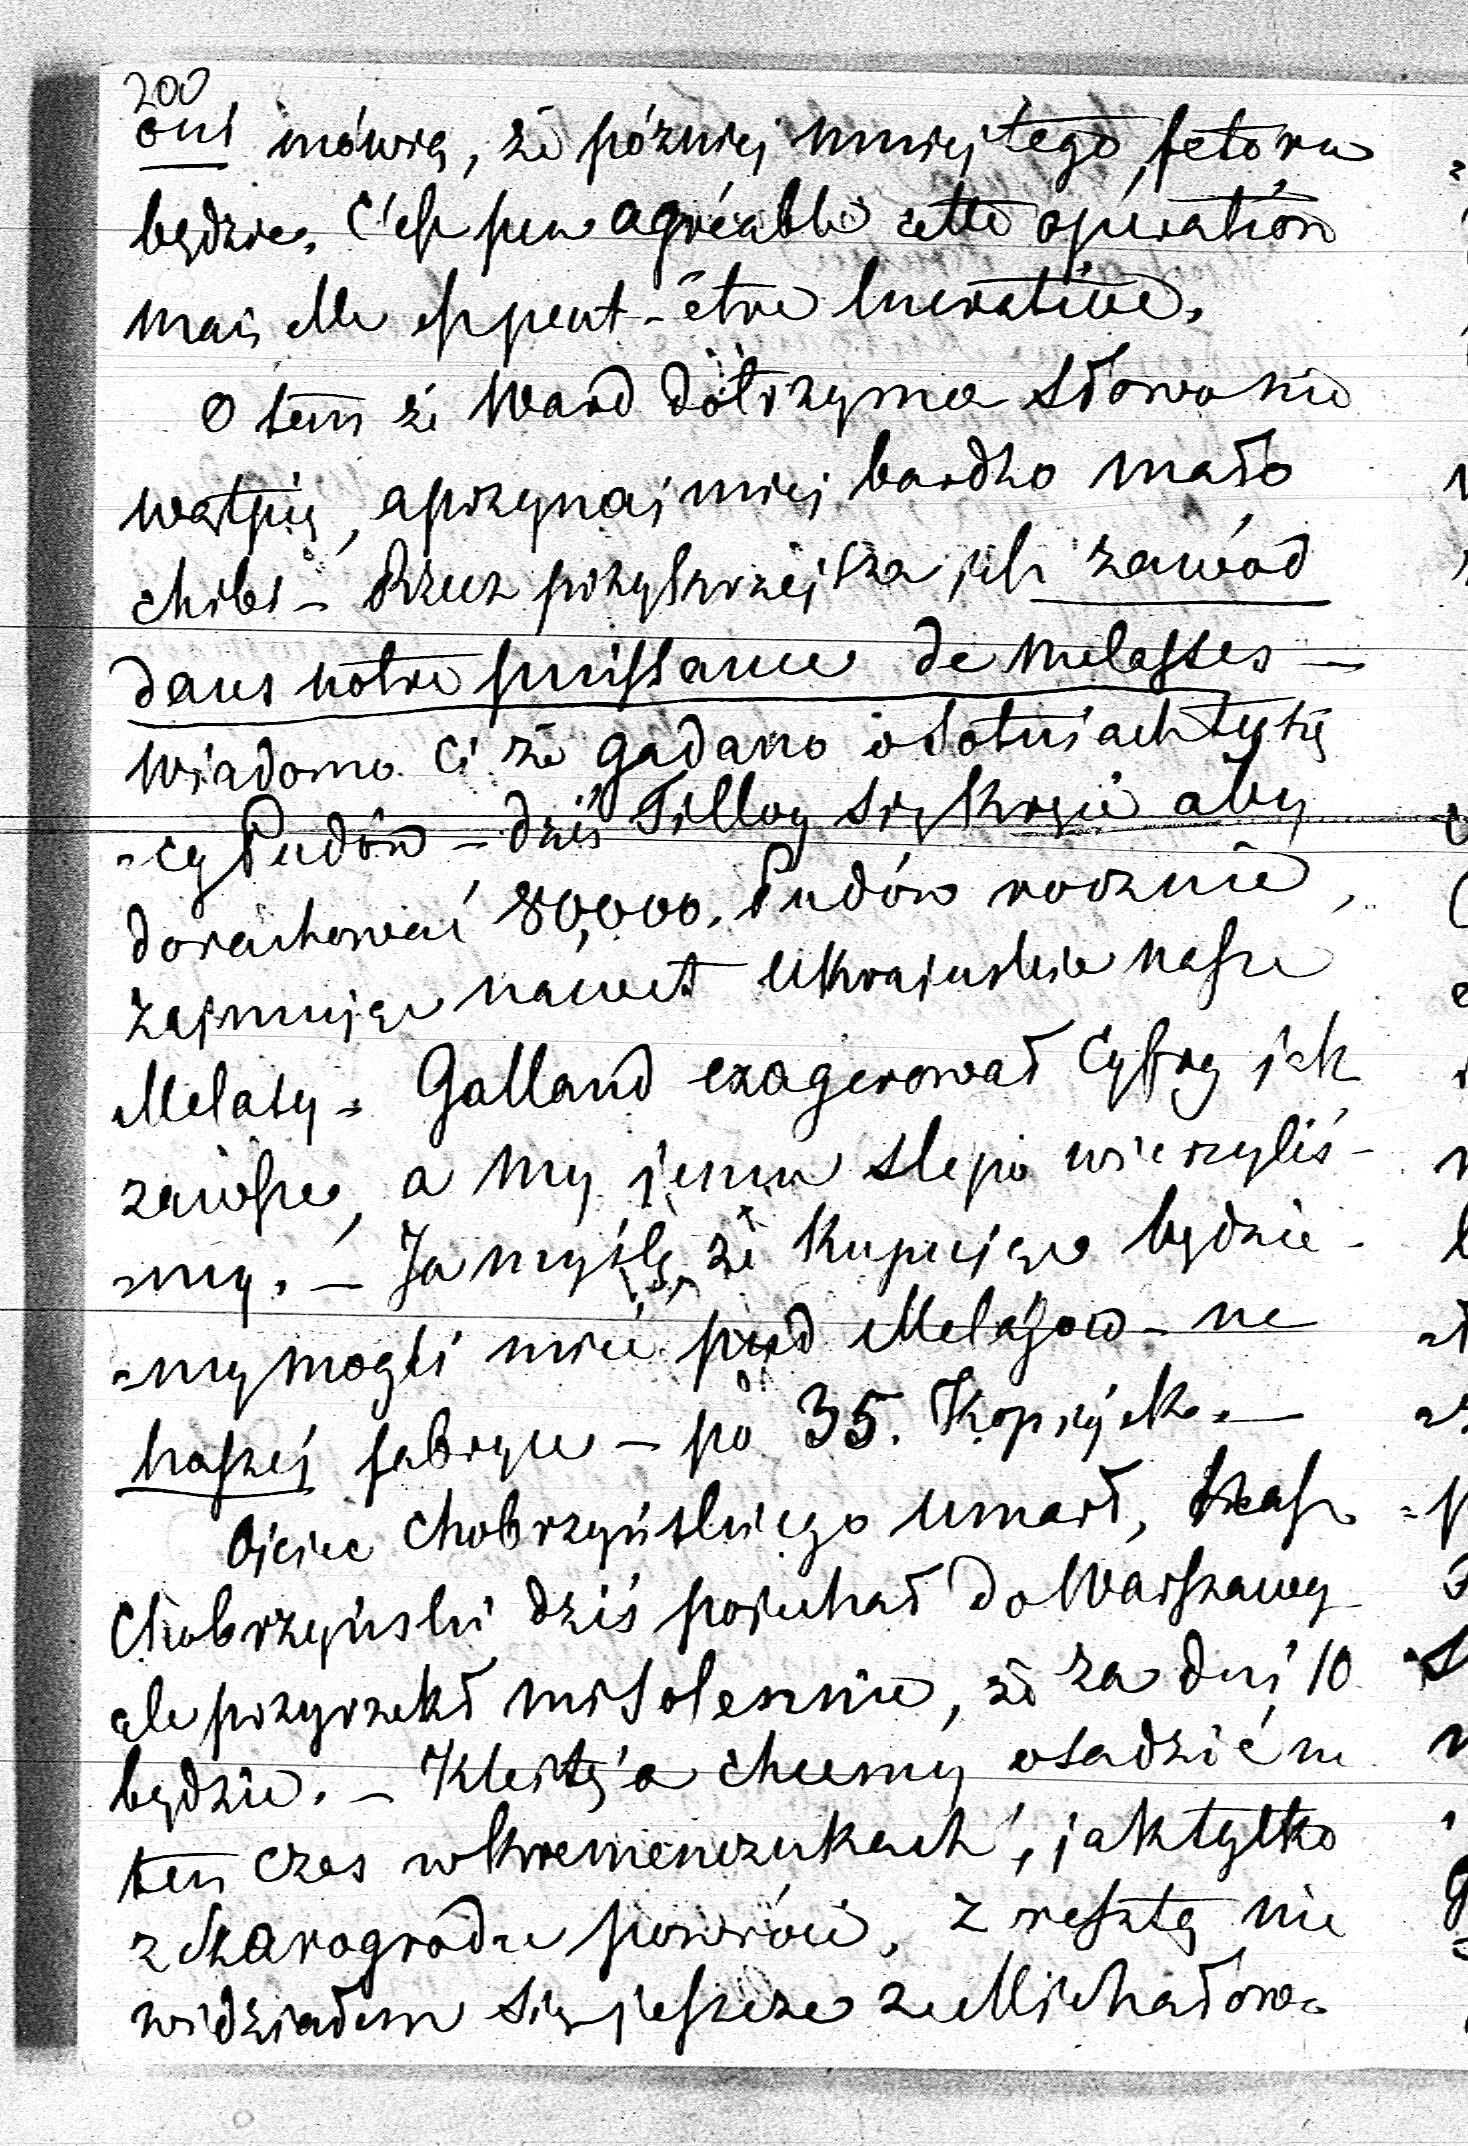 200
oni mówią, że później mniej tego fetoru
będzie. C'est peu agréable cette opération
mais elle est peut-être lucrative.
O tem że Ward dotrzyma słowa nie
wątpię, a przynajmniej bardzo mało
chiba - Rzecz przykrzejsza jest zawód
dans notre puissance de melasses -
wiadomo Ci że gadano o sotniach tysię
=cy Pudów - dziś Tilloy się kręci aby
dorachować 80,000. Pudów rocznie,
zajmując nawet Ukraińskie nasze
Melasy. Galland exagerował Cyfry jak
zawsze, a my jemu ślepo wierzyliś-
=my. - Ja myślę, że kupując będzie-
=my mogli mieć pud Melasów - na
naszej fabryce - po 35. Kopiejek. -
Ojciec Chobrzyńskiego umarł,
Chobrzyński dziś pojechał do Warszawy
ale przyrzekł mi solennie, że za dni 10
będzie. - chcemy osadzić na
ten czas w Kremenczukach, jak tylko
z Szarogrodu powróci, z resztą nie
widziałem się jeszcze z Michałow=